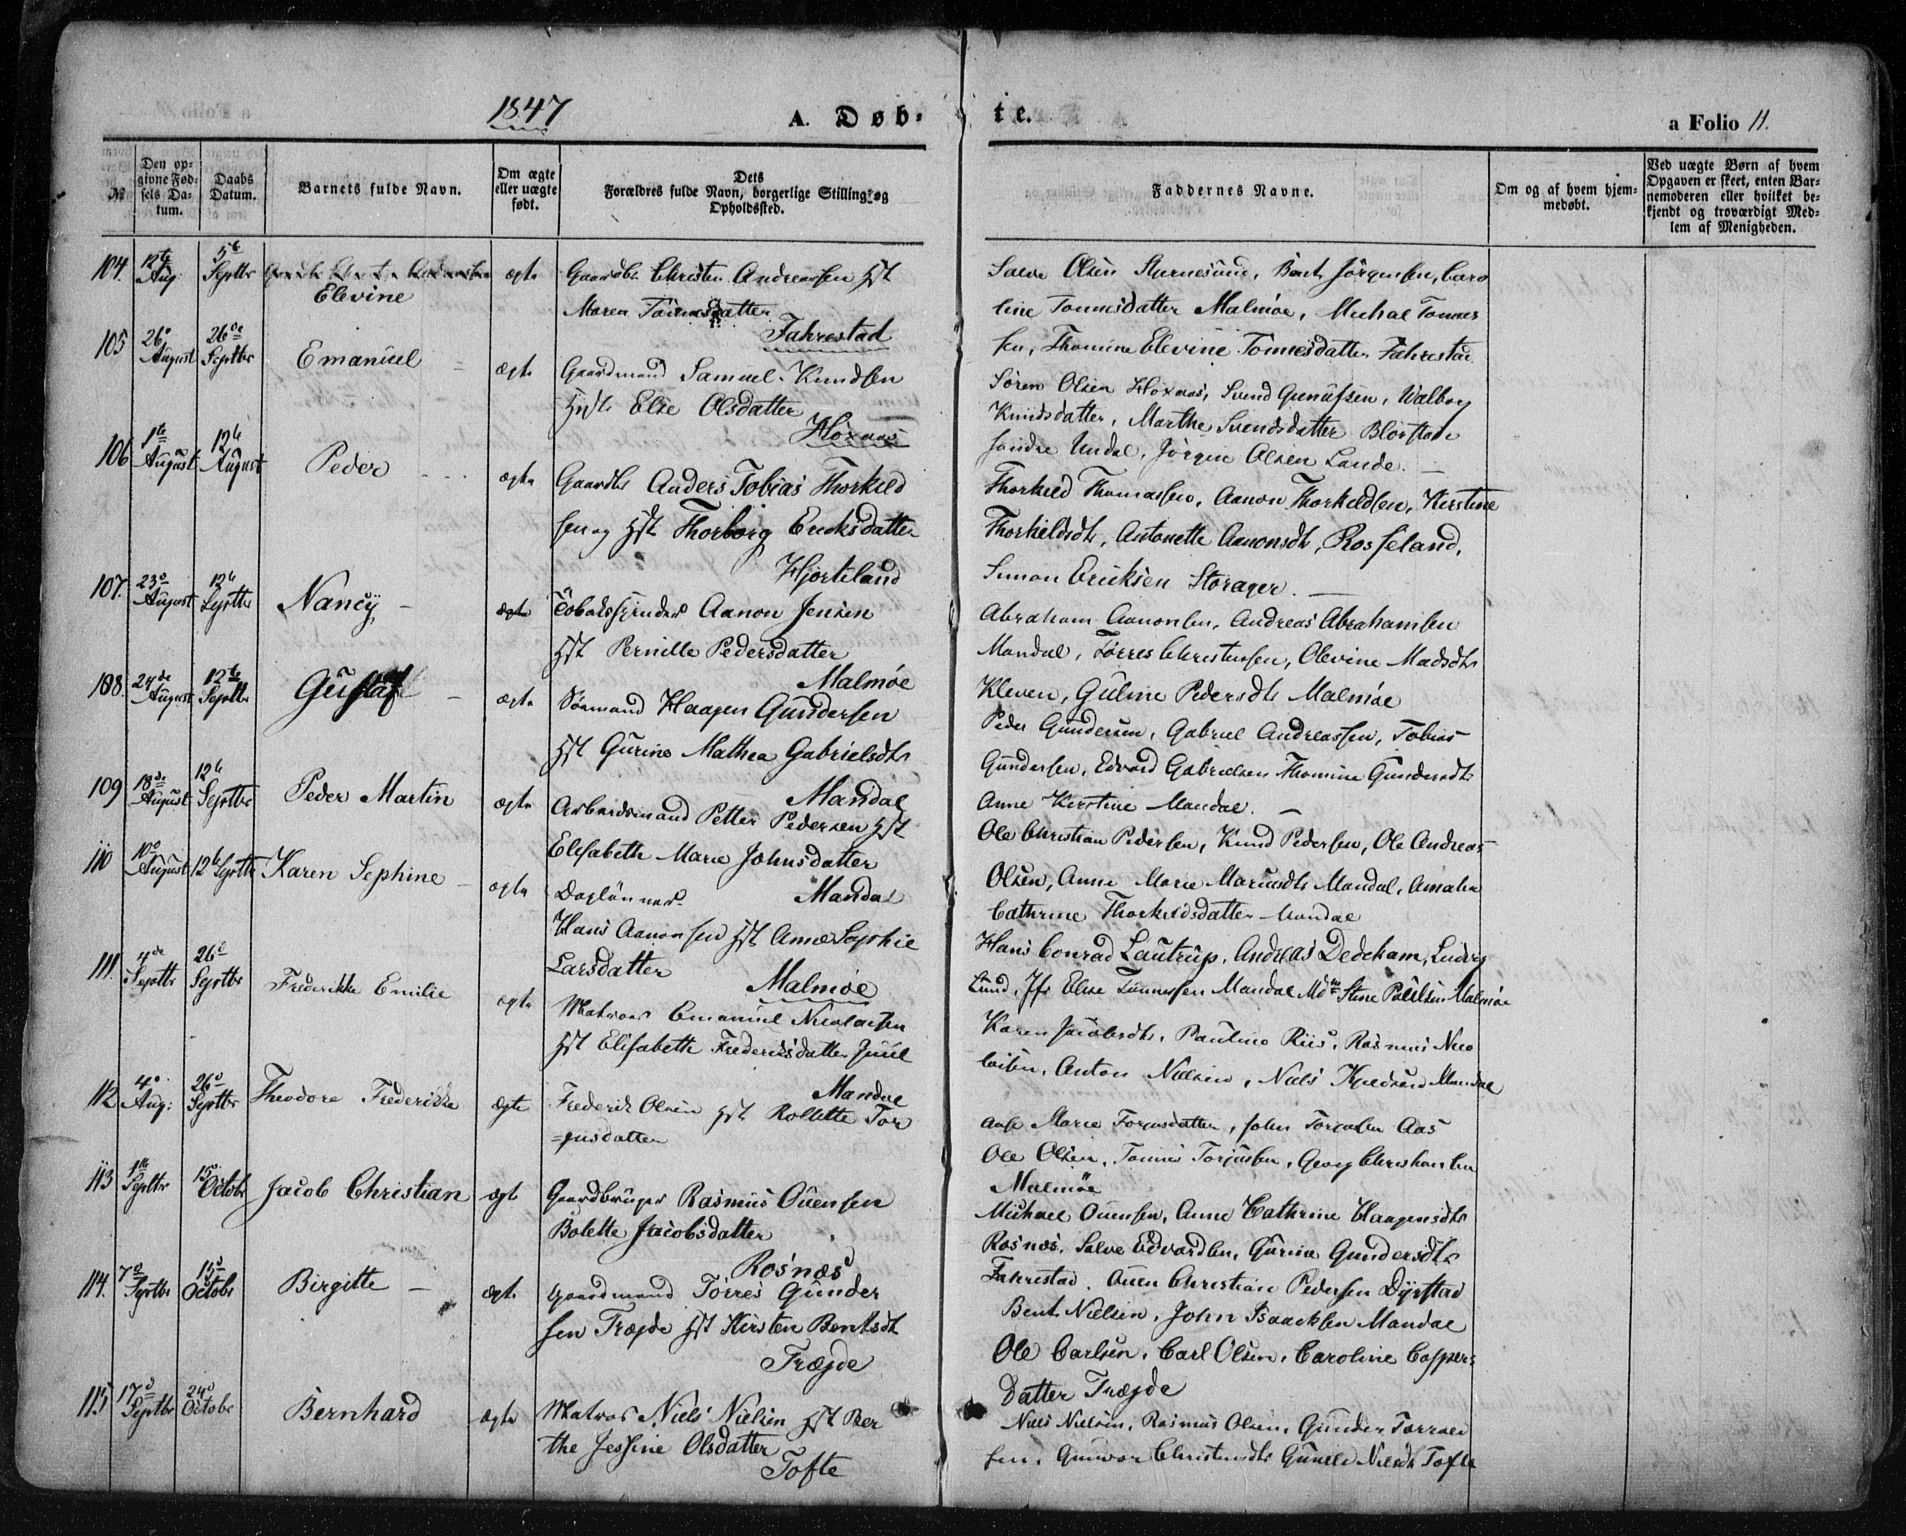 1847 A. Døb-
te. a Folio 11.
№ Den op-givne Fød-sels Da-tum. Daabs Datum. Barnets fulde Navn. Om ægte eller uægte født. Dets Forældres fulde Navn, borgerlige Stilling og Opholdssted.
Faddernes Navne. Om og af hvem hjem-medøbt. Ved uægte Børn af hvem Opgaven er skeet, enten Bar-nemoderen eller hvilket be-kjendt og troværdigt Med-lem af Menigheden.
104. 12te Aug. 5te Septbr Elevine ægte Gaardbr Christen Andreassen Hst
Maren Tönnesdatter
Fahrestad
Salve Olsen Sternesund, Bent Jörgensen, Caro
line Tonnesdatter Malmöe, Michal Tonnes
sen, Thomine Elevine Tonnesdatter Fahrestad
105 26 August 26de Septbr Emanuel ægte Gaardmand Samuel Knudsen
Hst Else Olsdatter
Höxnas
Sören Olsen Höxnas, Svend Gunufsen, Walborg
Knudsdatter, Marthe Svendsdatter
söndre Undal, Jörgen Olsen Lande.
106 1te August 12te August Peder ægte Gaardbr Anders Tobias Thorkild
sen og Hst Thorborg Ericksdatter
Hjorteland
Thorkild Thomassen, Aanon Thorkildsen, Kirstine
Thorkildsdt, Antonette Aanonsdt, Rosseland,
Simon Ericksen Storager.
107. 23d August 12te Septbr Nancÿ ægte Aanon Jensen
Hst Pernille Pedersdatter
Malmöe
Abraham Aanonsen, Andreas Abrahamsen
Mandal, Törres Christensen, Olevine Madsdt
Kleven, Guline Pedersdt Malmöe
108. 24de August 12te Septbr Gustaf ægte Sömand Haagen Gundersen
Hst Gurine Mathea Gabrielsdt
Mandal
Peder Gundersen, Gabriel Andreassen, Tobias
Gundersen, Edvard Gabrielsen Thomine Gundersdt
Anne Kirstine Mandal.
109 18de August 12te Septbr Peder Martin ægte Arbeidsmand Petter Pedersen Hst
Elisabeth Marie Johnsdatter
Mandal
Ole Christian Pedersen, Knud Pedersen, Ole Andreas
Olsen, Anne Marie Mandal, Amalia
Cathrine Thorkildsdatter Mandal
110 10d August 12te Septbr Karen Sephine ægte Daglönner
Hans Aanonsen Hst Anne Sophie
Larsdatter
Malmöe
Hans Conrad Lautrup, Andreas Dedekam, Ludvig
Lund, Jfr Else Tönnessen Mandal Mdm Stine Paulsen Malmöe
111. 4de Septbr 26d Septbr Frederikke Emilie ægte Matros Emanuel Nicolaisen
Hst Elisabeth Frederiksdatter Juul
Mandal
Karen Jacobsdt, Pauline Riis, Rasmus Nico
laisen, Anton Nielsen, Niels Mandal
112 4d Aug: 26d Septbr Theodore Frederikke ægte Frederik Olsen Hst Rollette Tor
=jusdatter
Aase Marie Torjusdatter, John Aas
Ole Olsen, Tönnes Torjussen, Georg Christiansen
Malmöe
113 1te Septbr 15d Octobr Jacob Christian ægte Gaardbruger Rasmus Ouensen
Bolette Jacobsdatter
Rosnæs
Michael Ouensen, Anne Cathrine Haagensdt
Rosnæs. Salve Edvardsen, Gurine Gundersdt
Fahrestad. Ouen Christian Pedersen Dyrstad
114. 7d Septbr 15d Octobr Birgitte ægte Gaardmand Törres Gunder
sen Trægde Hst Kirsten Bentsdt
Trægde
Bent Nielsen, John Isaacksen Mandal
Ole Carlsen, Carl Olsen, Caroline Casper-
datter Trægde
115 17d Septbr 24d Octobr Bernhard ægte Matros Niels Nielsen Hst Ber
the Jessine Olsdatter
Tofte
Niels Nielsen, Rasmus Olsen, Gunder Torres
sen, Gunvor Gunild Nielsdt Tofte